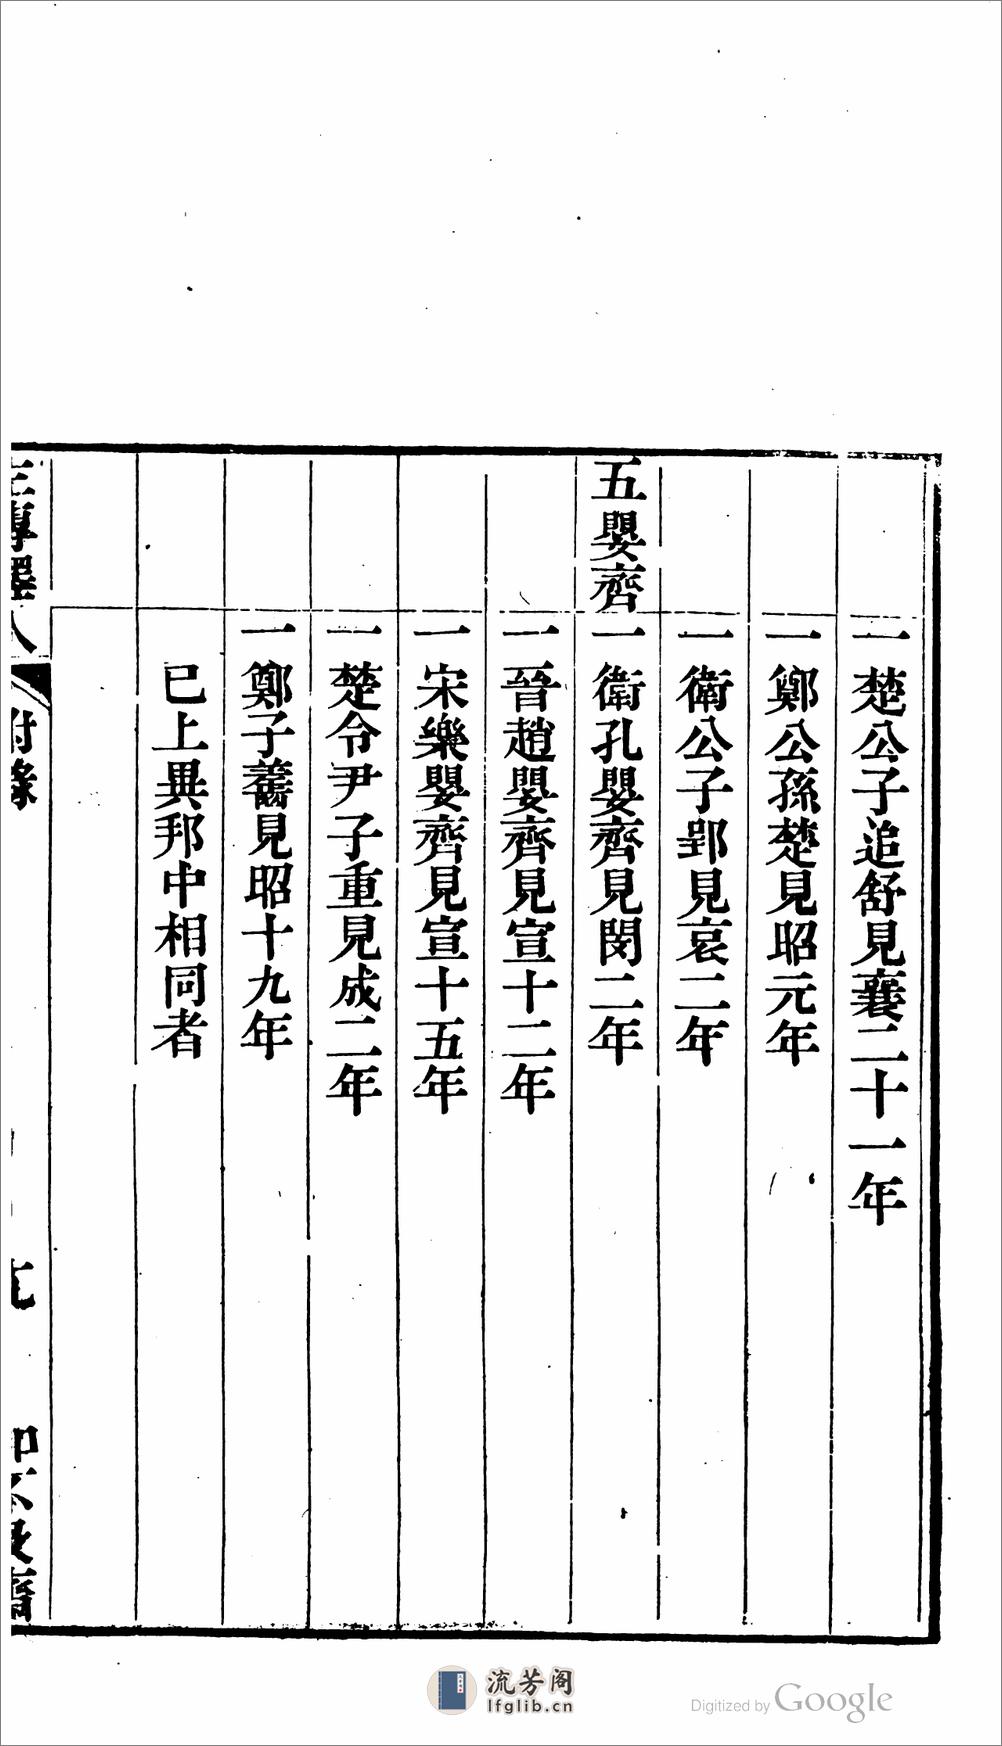 一楚公子追舒見襄二十一年
一鄭公孫楚見昭元年
一衛公子郢見哀二年
五嬰齊一衛孔嬰齊見閔二年
一晉趙嬰齊見宣十二年
一宋樂嬰齊見宣十五年
一楚令尹子重見成二年
一鄭子蟜見昭十九年
已上異邦中相同者
附錄
流芳阁
lfglib.cn
Digitized by Google